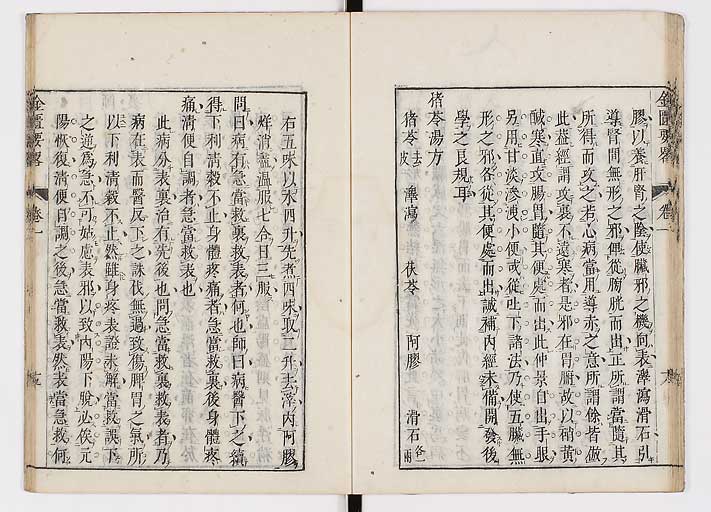 金匱要畧 卷一
膠以養肝腎之陰使臟邪之機向表澤瀉滑石引
導腎間無形之邪俾從膀胱而出正所謂當隨其
所得而攻之若心病當用導赤之意所謂餘皆倣
此葢經謂攻裏不遠寒者是邪在胃腑故以硝黃
鹹寒直攻腸胃隨其便處而出此仲景自出手眼
另用甘淡滲洩小便或從吐下諸法乃使五臟無
形之邪各從其便處而出誠補內經未備開發後
學之良規耳
猪苓湯方
猪苓 去皮 澤瀉 茯苓 阿膠 滑石 各一兩
右五味以水四升先煮四味取二升去滓內阿膠
烊消盡溫服七合日三服
問曰病有急當救裏救表者何也師曰病醫下之續
得下利清穀不止身體疼痛者急當救裏後身體疼
痛清便自調者急當救表也
此病分表裏治有先後也問急當救裏救表者乃
病在表而醫反下之誅伐無過致傷脾胃之氣所
以下利清穀不止然雖身疼表證未解當救誤下
之逆為急不可姑慮表邪以致內陽下脫必俟元
陽恢復清便自調之後急當救表然表當急救何
金匱要畧 卷一